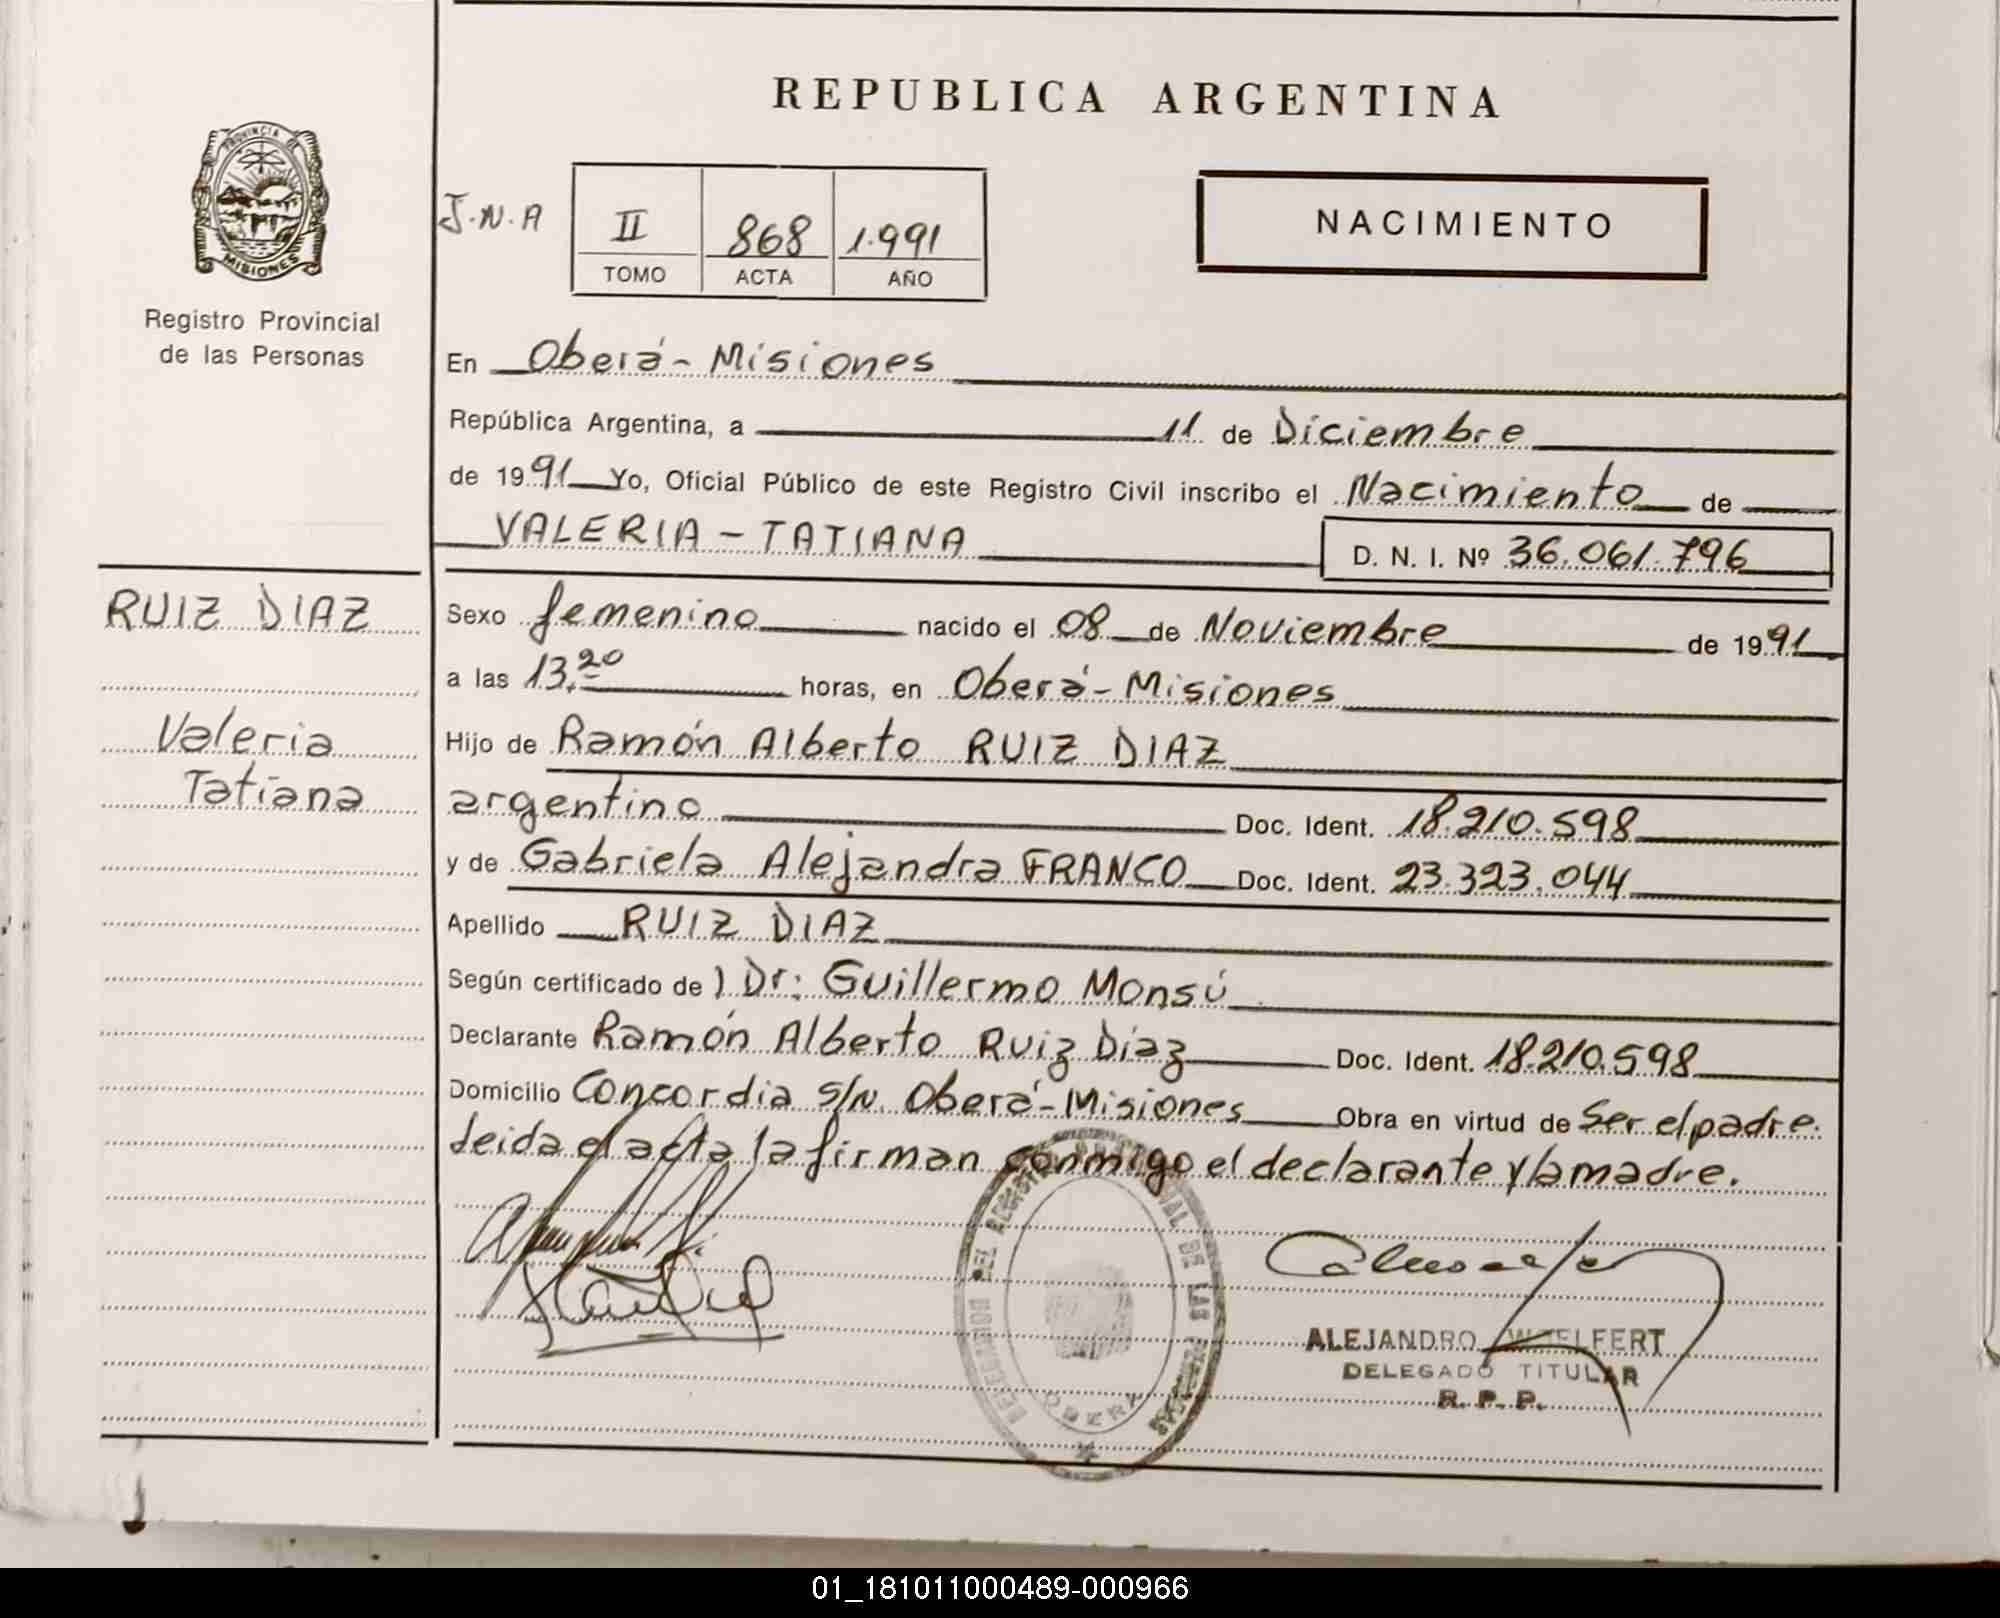 REPUBLICA ARGENTINA
PROVINCIA DE
MISIONES
Registro Provincial
de las Personas
J.N.A
II 868 1.991
TOMO ACTA AÑO
NACIMIENTO
En Oberá - Misiones
República Argentina, a 11 de Diciembre
de 1991 Yo, Oficial Público de este Registro Civil inscribo el Nacimiento de
VALERIA - TATIANA D. N. I. Nº 36.061.796
RUIZ DIAZ
Valeria
Tatiana
Sexo femenino nacido el 08 de Noviembre de 1991
a las 13.20 horas, en Oberá - Misiones
Hijo de Ramón Alberto RUIZ DIAZ
argentino Doc. Ident. 18.210.598
y de Gabriela Alejandra FRANCO Doc. Ident. 23.323.044
Apellido RUIZ DIAZ
Según certificado de ) Dr: Guillermo Monsú
Declarante Ramón Alberto Ruiz Díaz Doc. Ident. 18.210.598
Domicilio Concordia s/N. Oberá - Misiones Obra en virtud de Ser el padre.
leida el acta la firman conmigo el declarante y la madre.
DELEGACION DEL REGISTRO PROVINCIAL DE LAS PERSONAS
OBERA
ALEJANDRO WOELFERT
DELEGADO TITULAR
R. P. P.
01_181011000489-000966